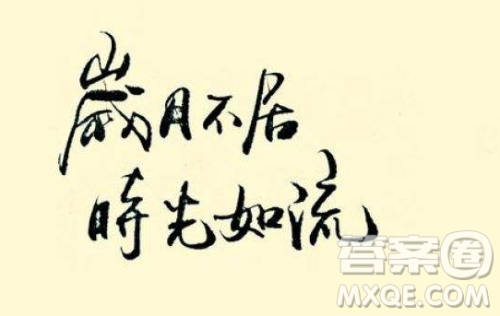 歲月不居
時光如流
答案圈
MXQE.COM